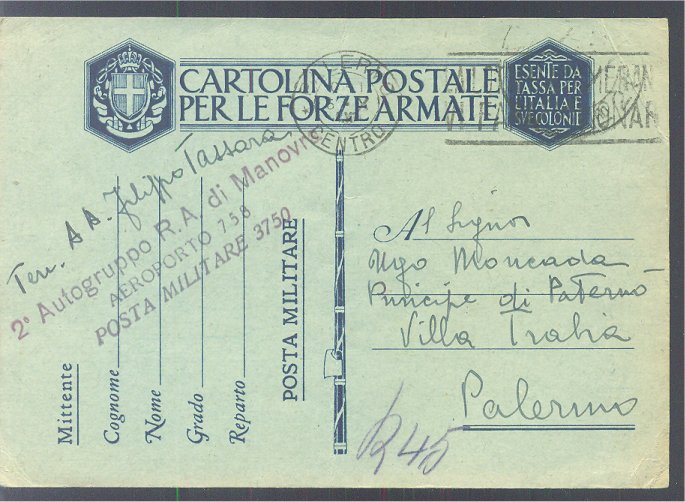 CARTOLINA POSTALE
PER LE FORZE ARMATE
ESENTE DA
TASSA PER
L'ITALIA E
SVE COLONIE
CENTRO
Ten. A A. Filippo Tassara
2° Autogruppo R.A. di Manovra
AEROPORTO 758
POSTA MILITARE 3750
Mittente
Cognome
Nome
Grado
Reparto
POSTA MILITARE
Al Signor
Ugo Moncada
Principe di Paternò
Villa Trabia
Palermo